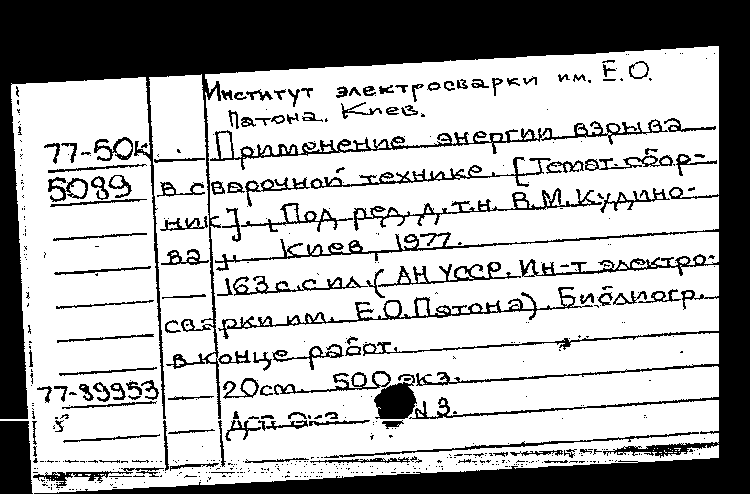 Институт электросварки им. Е.О.
Патона. Киев.
77-50к Применение энергии взрыва
5089 в сварочной технике. [Темат. сбор-
ник]. Под ред. д.т.н. В.М. Кудино-
ва. Киев, 1977.
163 с. с ил. (АН УССР. Ин-т электро-
сварки им. Е.О. Патона). Библиогр.
в конце работ.
77-39953 20см. 500 экз.
Дсп экз. №3.